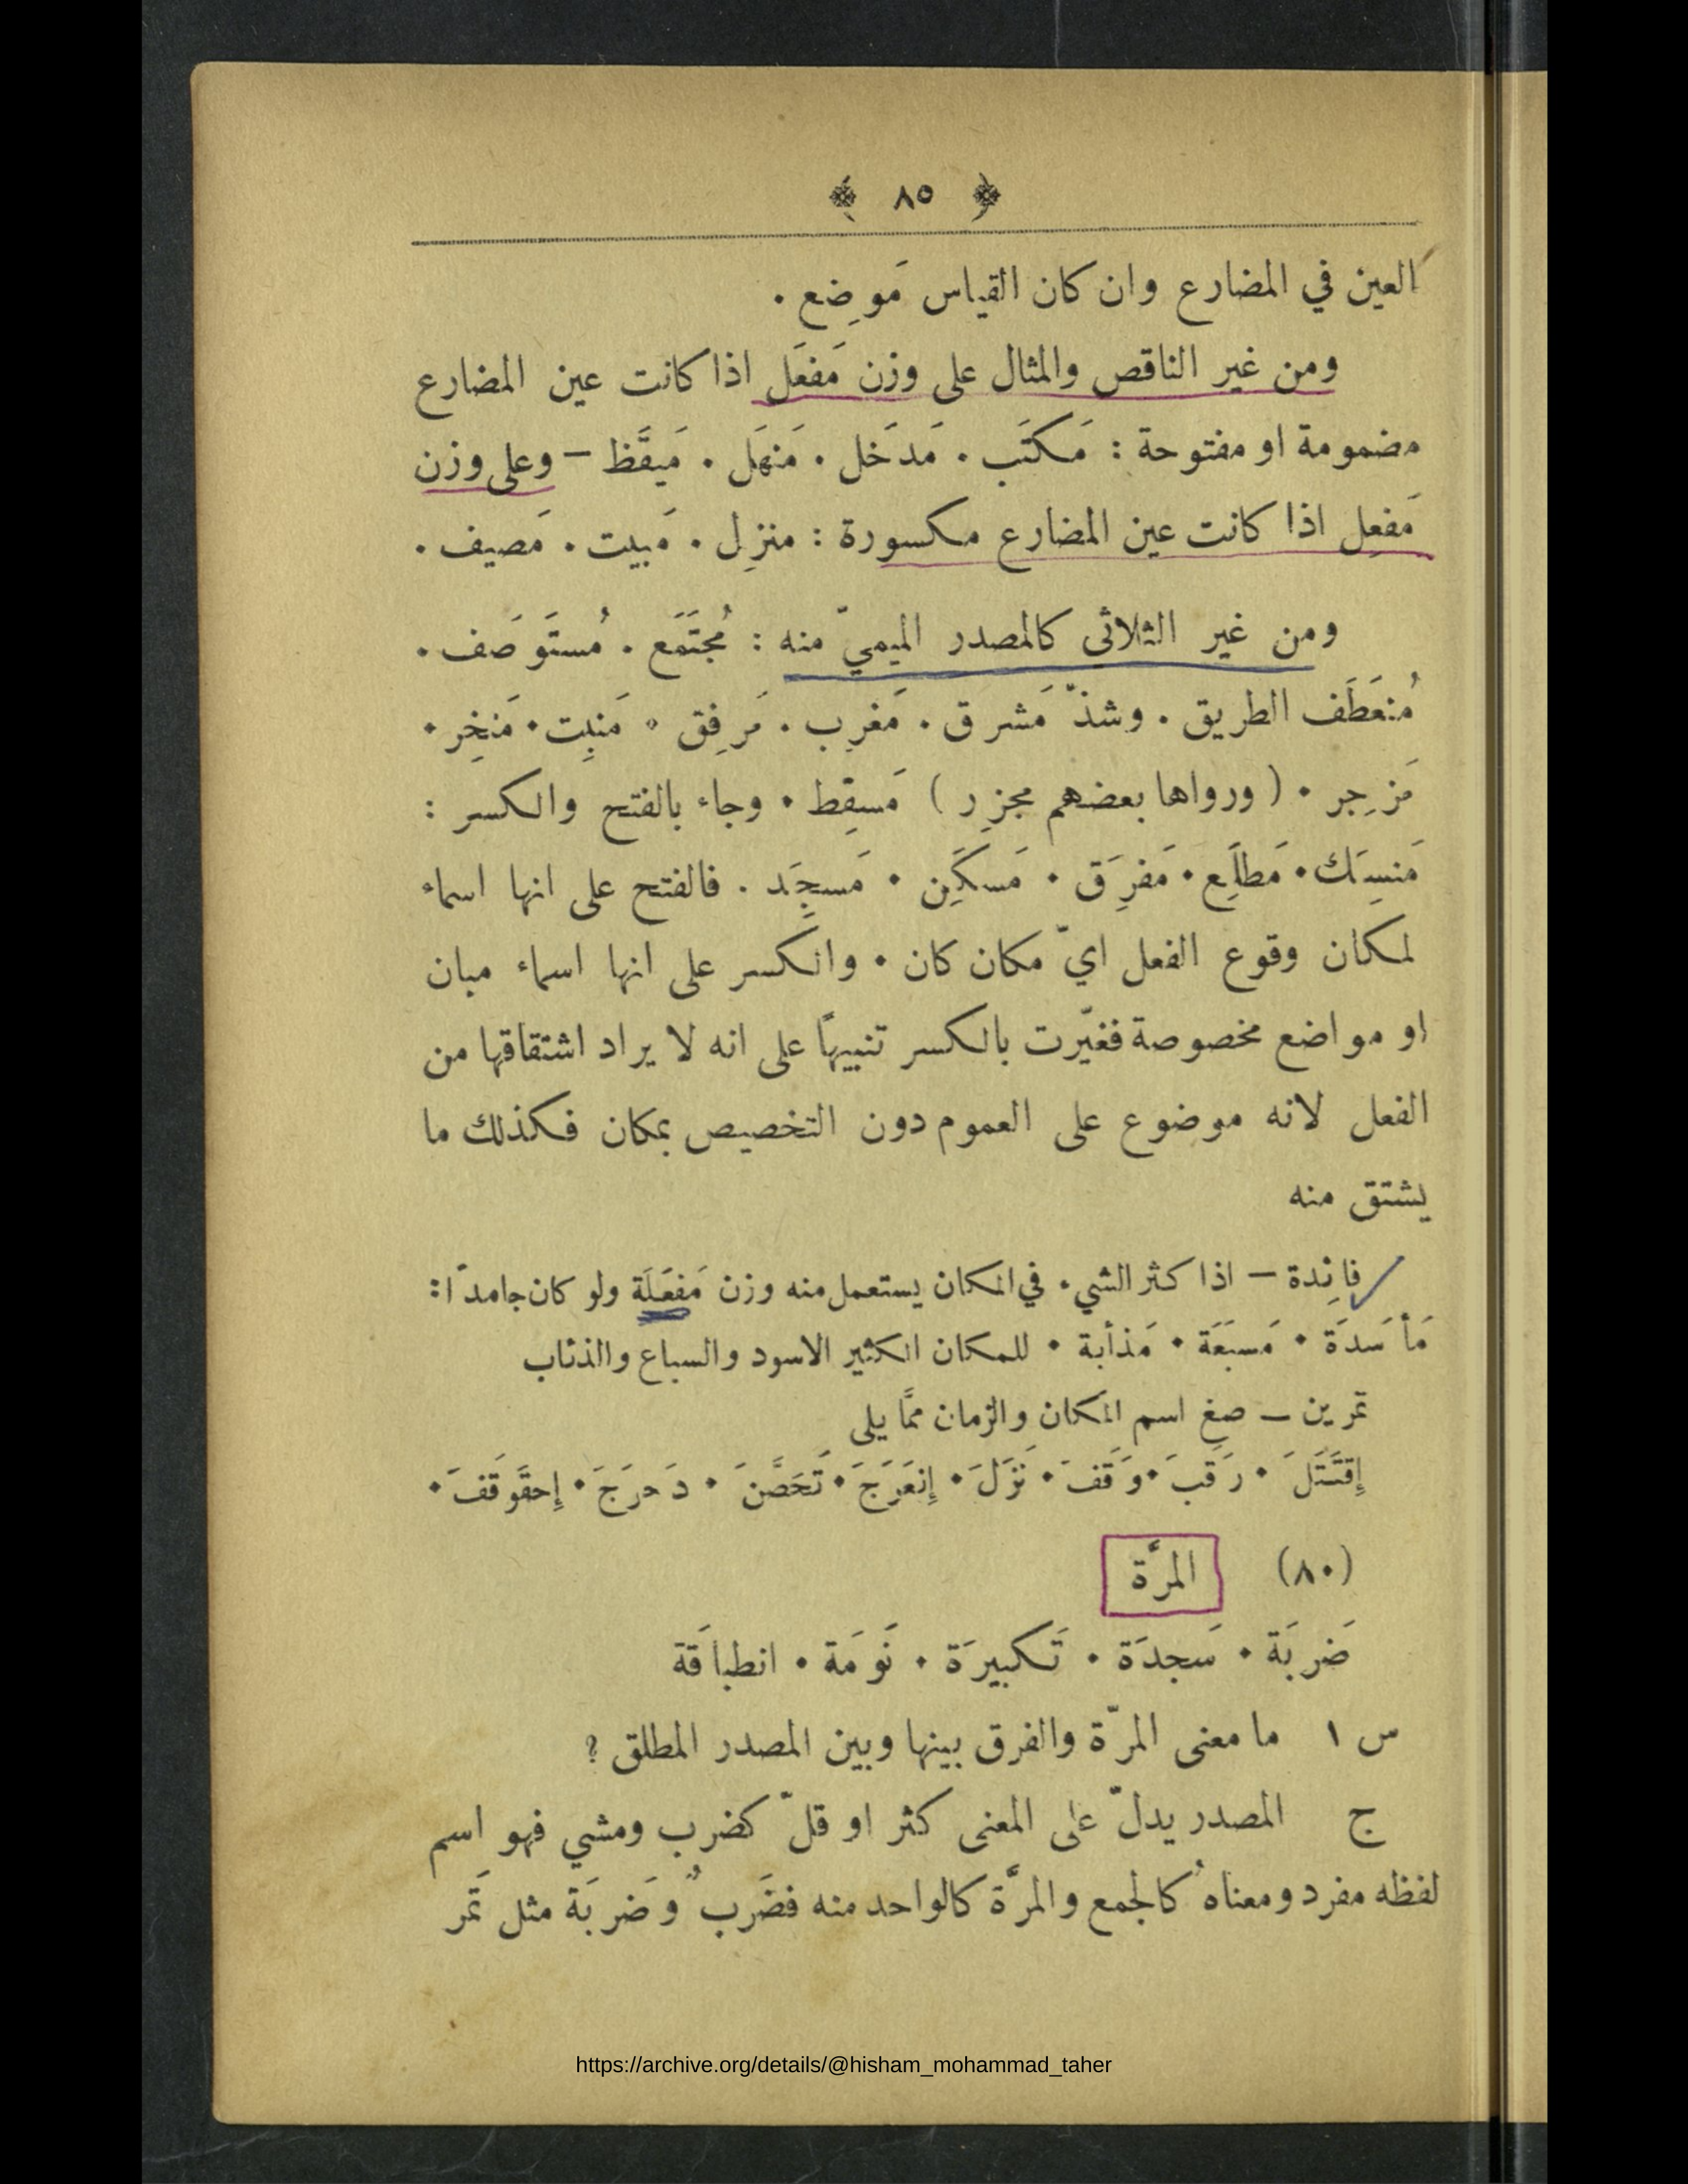 ﴿ ٨٥ ﴾
العين في المضارع وان كان القياس مَوضِع .
ومن غير الناقص والمثال على وزن مَفعَل اذا كانت عين المضارع
مضمومة او مفتوحة : مَكتَب . مَدخَل . مَنهَل . مَيقَظ – وعلى وزن
مَفعِل اذا كانت عين المضارع مكسورة : منزِل . مَبيت . مَصيف .
ومن غير الثلاثى كالمصدر الميميّ منه : مُجتَمَع . مُستَوصَف .
مُنعَطَف الطريق . وشذّ مَشرق . مَغرِب . مَرفِق . مَنبِت . مَنخِر .
مَزجِر . ( ورواها بعضهم مجزِر ) مَسقِط . وجاء بالفتح والكسر :
مَنسِـَك . مَطلِـَع . مَفرِـَق . مَسكِـَن . مَسجِـَد . فالفتح على انها اسماء
لمكان وقوع الفعل ايّ مكان كان . والكسر على انها اسماء مبان
او مواضع مخصوصة فغيّرت بالكسر تنبيهًا على انه لا يراد اشتقاقها من
الفعل لانه موضوع على العموم دون التخصيص بمكان فكذلك ما
يشتق منه
فائدة – اذا كثر الشيء في المكان يستعمل منه وزن مَفعَلَة ولو كان جامدًا :
مَأسَدَة . مَسبَعَة . مَذأبة . للمكان الكثير الاسود والسباع والذئاب
تمرين – صغ اسم المكان والزمان ممَّا يلى
إِقتَتَلَ . رَقَبَ . وَقَفَ . نَزَلَ . إِنعَرَجَ . تَحَصَّنَ . دَحرَجَ . إِحقَوقَفَ .
(٨٠) المرَّة
ضَربَة . سَجدَة . تَكبيرَة . نَومَة . انطباقَة
س ١ ما معنى المرّة والفرق بينها وبين المصدر المطلق ؟
ج المصدر يدلّ على المعنى كثر او قلّ كضرب ومشي فهو اسم
لفظه مفرد ومعناهُ كالجمع والمرَّة كالواحد منه فضَربٌ وضَربَة مثل تَمر
https://archive.org/details/@hisham_mohammad_taher